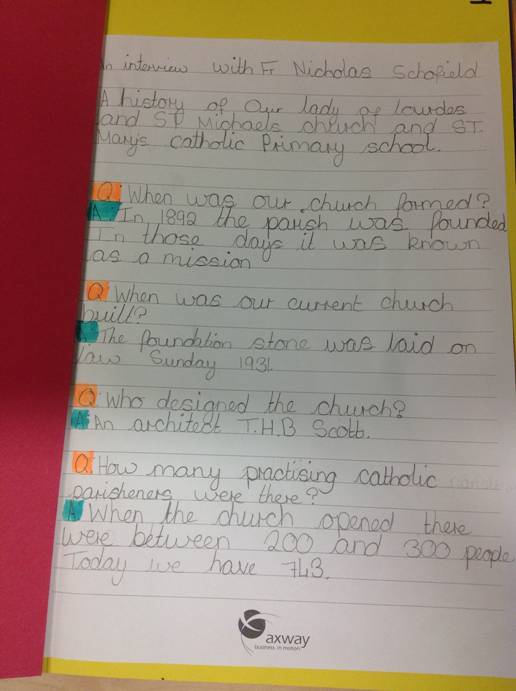 An interview with Fr Nicholas Schofield
A history of Our lady of lourdes
and ST Michaels church and ST.
Mary's catholic Primary school.
Q: When was our church formed?
A: In 1892 the parish was founded
In those days it was known
as a mission
Q: When was our current church
built?
A: The foundation stone was laid on
law Sunday 1931.
Q: Who designed the church?
A: An architect T.H.B Scott.
Q: How many practising catholic
parisheners were there?
A: When the church opened there
were between 200 and 300 people
Today we have 743.
axway
business in motion